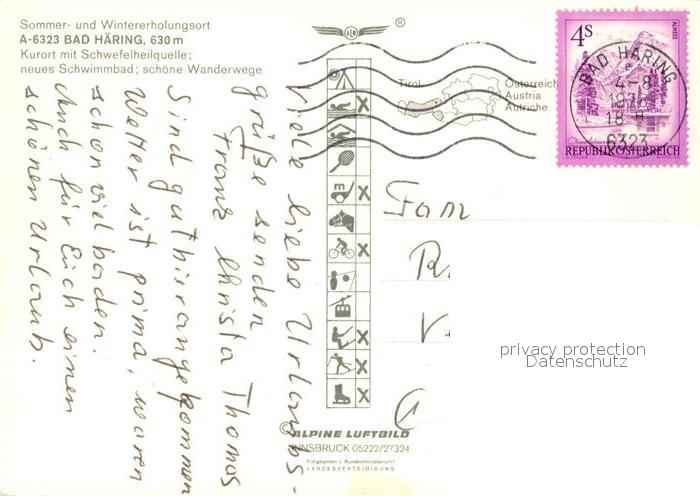 Sommer- und Wintererholungsort
A-6323 BAD HÄRING, 630 m
Kurort mit Schwefelheilquelle;
neues Schwimmbad; schöne Wanderwege
®
Tirol
Österreich
Austria
Autriche
4S
ALMSEE
REPUBLIK ÖSTERREICH
BAD HÄRING
e
4-8
1978
18-9
6323
m
X
X
X
X
X
X
Vielle liebe Urlaubs-
grüße senden
Franz Christa Thomas
Sind gut hirangekommen
Wetter ist prima, waren
schon viel baden.
Auch für Euch einen
schönen Urlaub.
Fam
R
V
privacy protection
Datenschutz
© ALPINE LUFTBILD
INNSBRUCK 05222/27324
Freigegeben v. Bundesministerium f.
LANDESVERTEIDIGUNG